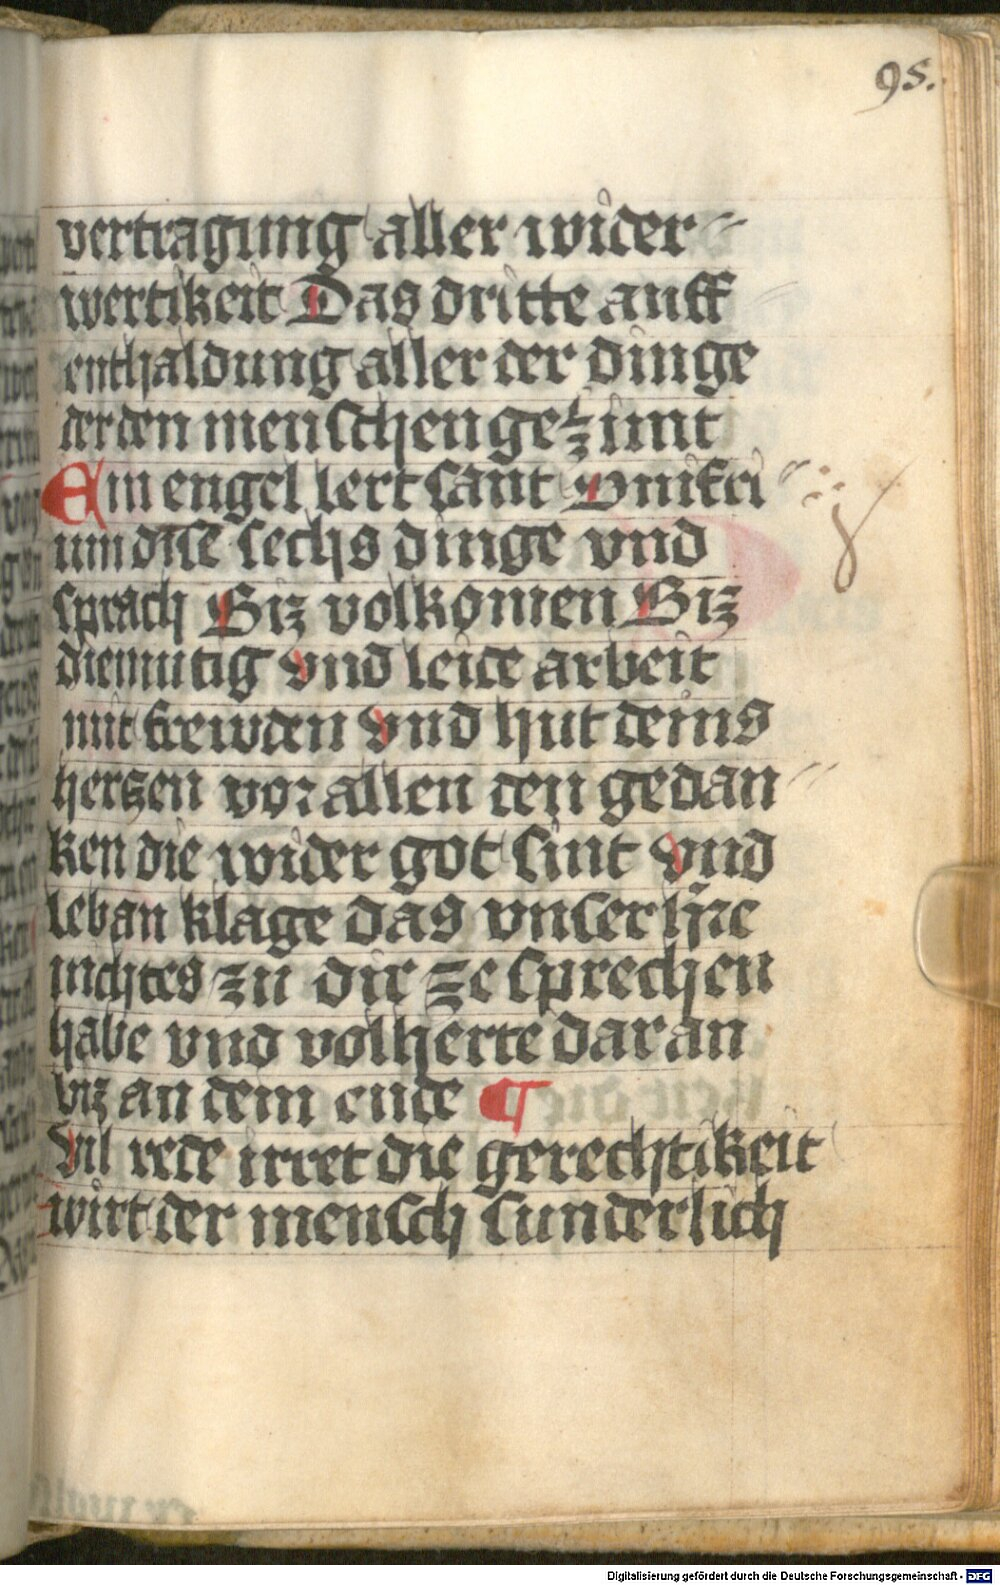 95.
vertragung aller wider-
wertikeit Das dritte auff
enthaldung aller der dinge
der den menschen gezimt
Ein engel lert sant Onifri
um dise sechs dinge vnd
sprach Biz volkomen Biz
diemutig vnd leide arbeit
mit frewden vnd hut deins
herczen vor allen den gedan-
ken die wider got sint vnd
leban klage das vnser h̄re
nichtes zu dir ze sprechen
habe vnd volherte daran
biz an dem ende ¶
Vil rede irret die gerechtikeit
wirt der mensch sunderlich
Digitalisierung gefördert durch die Deutsche Forschungsgemeinschaft - DFG